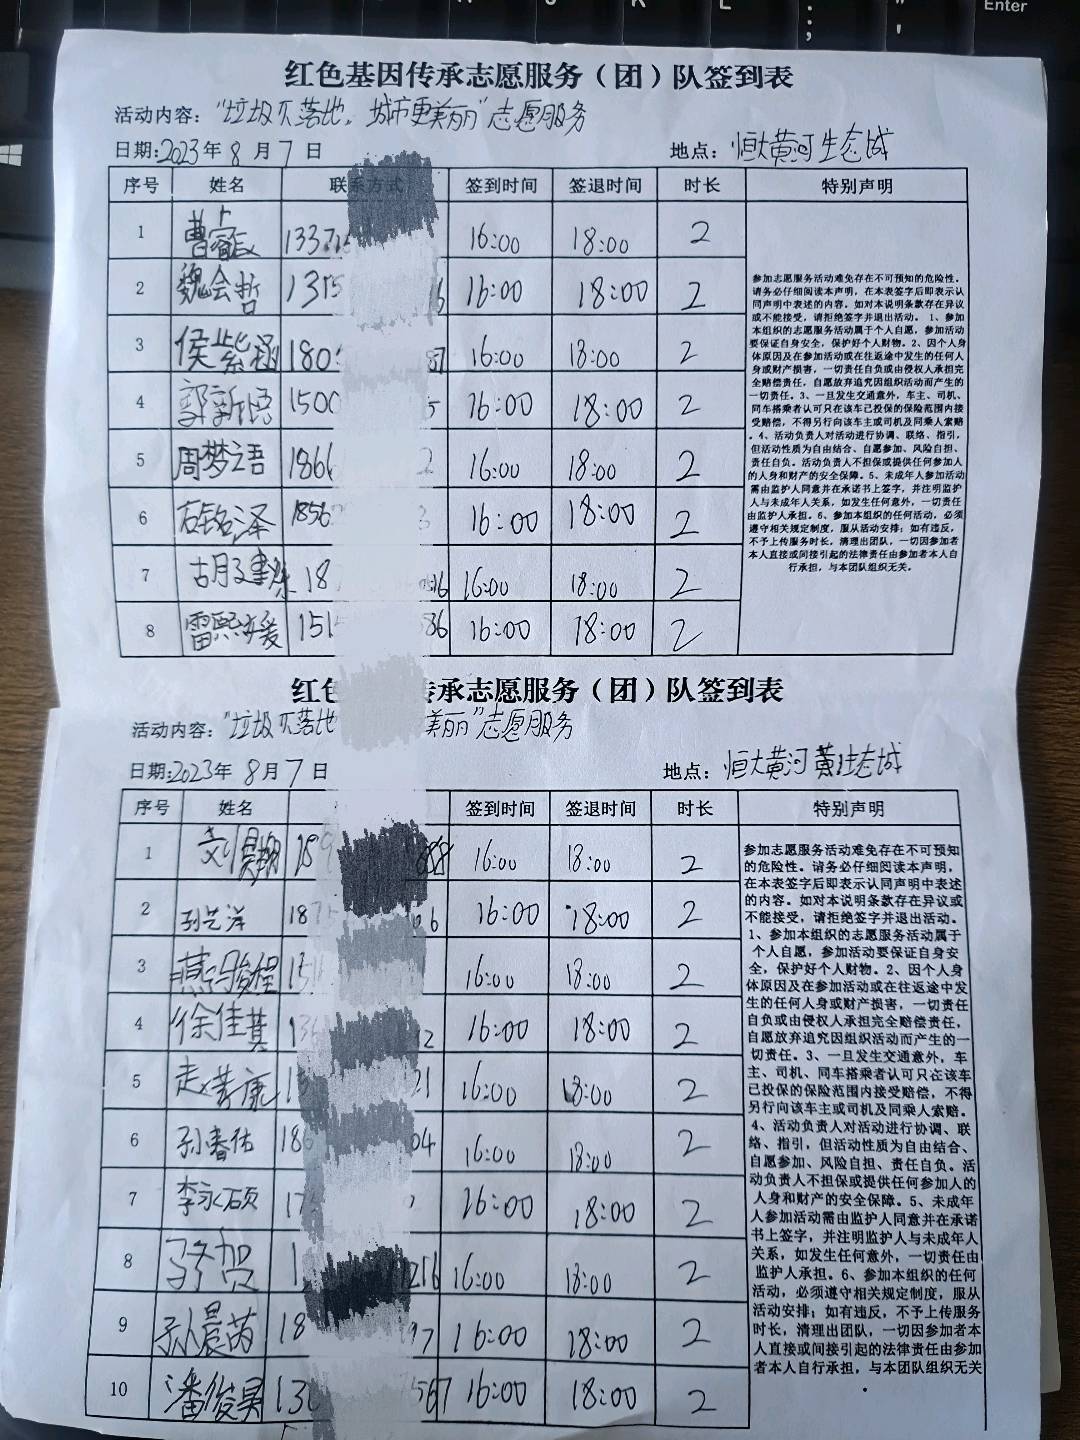 Enter
L
; :
" '
红色基因传承志愿服务（团）队签到表
活动内容：“垃圾不落地，城市更美丽”志愿服务
日期：2023年8月7日 地点：恒大黄河生态城
序号 姓名 联系方式 签到时间 签退时间 时长 特别声明
1 曹睿辰 133 16:00 18:00 2
2 魏会哲 1315 16:00 18:00 2
3 侯紫涵 180 87 16:00 18:00 2
4 郭新语 1500 5 16:00 18:00 2
5 周梦语 1866 2 16:00 18:00 2
6 石铭泽 1856 3 16:00 18:00 2
7 18 16:00 18:00 2
8 雷熙媛 151 86 16:00 18:00 2
参加志愿服务活动难免存在不可预知的危险性。
请务必仔细阅读本声明，在本表签字后即表示认
同声明中表述的内容。如对本说明条款存在异议
或不能接受，请拒绝签字并退出活动。 1、参加
本组织的志愿服务活动属于个人自愿，参加活动
要保证自身安全，保护好个人财物。2、因个人身
体原因及在参加活动或在往返途中发生的任何人
身或财产损害，一切责任自负或由侵权人承担完
全赔偿责任，自愿放弃追究因组织活动而产生的
一切责任。3、一旦发生交通意外，车主、司机、
同车搭乘者认可只在该车已投保的保险范围内接
受赔偿，不得另行向该车主或司机及同乘人索赔
。4、活动负责人对活动进行协调、联络、指引，
但活动性质为自由结合、自愿参加、风险自担、
责任自负。活动负责人不担保或提供任何参加人
的人身和财产的安全保障。5、未成年人参加活动
需由监护人同意并在承诺书上签字，并注明监护
人与未成年人关系，如发生任何意外，一切责任
由监护人承担。6、参加本组织的任何活动，必须
遵守相关规定制度，服从活动安排；如有违反，
不予上传服务时长，清理出团队，一切因参加者
本人直接或间接引起的法律责任由参加者本人自
行承担，与本团队组织无关。
红色 传承志愿服务（团）队签到表
活动内容：“垃圾不落地 美丽”志愿服务
日期：2023年8月7日 地点：恒大黄河生态城
序号 姓名 签到时间 签退时间 时长 特别声明
1 刘昊翔 16:00 18:00 2
2 孙艺洋 187 6 16:00 18:00 2
3 燕骏程 16:00 18:00 2
4 徐佳其 13 12 16:00 18:00 2
5 赵善康 21 16:00 18:00 2
6 孙春佑 18 04 16:00 18:00 2
7 李永硕 16:00 18:00 2
8 贺 16 16:00 18:00 2
9 孙晨芮 18 97 16:00 18:00 2
10 潘俊昊 13 567 16:00 18:00 2
参加志愿服务活动难免存在不可预知
的危险性。请务必仔细阅读本声明，
在本表签字后即表示认同声明中表述
的内容。如对本说明条款存在异议或
不能接受，请拒绝签字并退出活动。
1、参加本组织的志愿服务活动属于
个人自愿，参加活动要保证自身安
全，保护好个人财物。2、因个人身
体原因及在参加活动或在往返途中发
生的任何人身或财产损害，一切责任
自负或由侵权人承担完全赔偿责任，
自愿放弃追究因组织活动而产生的一
切责任。3、一旦发生交通意外，车
主、司机、同车搭乘者认可只在该车
已投保的保险范围内接受赔偿，不得
另行向该车主或司机及同乘人索赔。
4、活动负责人对活动进行协调、联
络、指引，但活动性质为自由结合、
自愿参加、风险自担、责任自负。活
动负责人不担保或提供任何参加人的
人身和财产的安全保障。5、未成年
人参加活动需由监护人同意并在承诺
书上签字，并注明监护人与未成年人
关系，如发生任何意外，一切责任由
监护人承担。6、参加本组织的任何
活动，必须遵守相关规定制度，服从
活动安排；如有违反，不予上传服务
时长，清理出团队，一切因参加者本
人直接或间接引起的法律责任由参加
者本人自行承担，与本团队组织无关